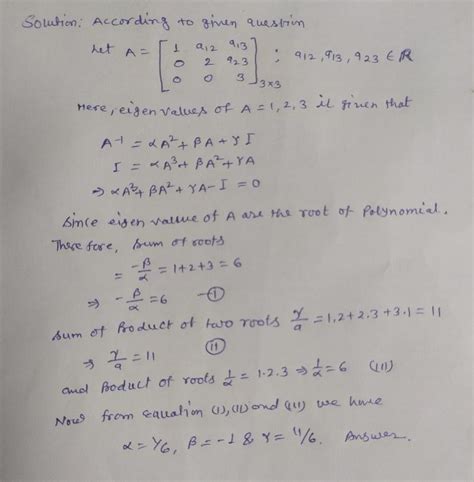 Solution: According to given question
Let A = [ 1 a12 a13 ; 0 2 a23 ; 0 0 3 ]3×3 ; a12, a13, a23 ∈ ℝ
Here, eigen values of A = 1, 2, 3 it given that
A⁻¹ = αA² + βA + γI
I = αA³ + βA² + γA
⇒ αA³ + βA² + γA - I = 0
Since eigen value of A are the root of Polynomial.
Therefore, Sum of roots
= -β/α = 1+2+3 = 6
⇒ -β/α = 6 —(I)
Sum of Product of two roots γ/a = 1.2+2.3+3.1 = 11
⇒ γ/a = 11 (II)
and Boduct of roots 1/α = 1.2.3 ⇒ 1/α = 6 (III)
Now from equation (I), (II) and (III) we have
α = 1/6, β = -1 & γ = 11/6. Answer.